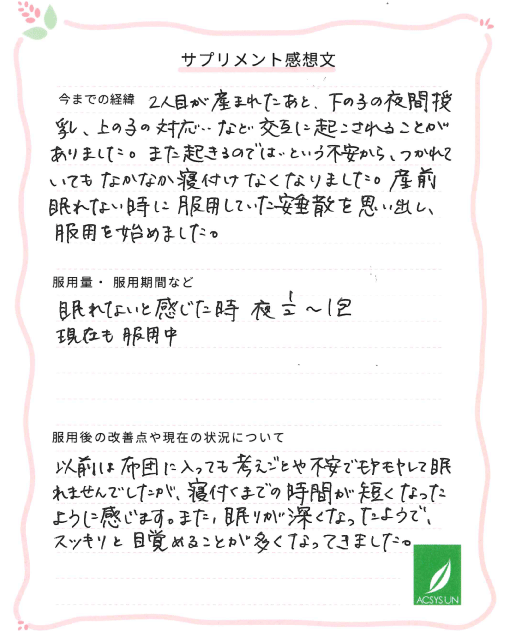 サプリメント感想文
今までの経緯 2人目が産まれたあと、下の子の夜間授
乳、上の子の対応‥など交互に起こされることが
ありました。また起きるのでは‥という不安から、つかれて
いてもなかなか寝付けなくなりました。産前
眠れない時に服用していた安垂散を思い出し、
服用を始めました。
服用量・服用期間など
眠れないと感じた時 夜 1/2 ～1包
現在も服用中
服用後の改善点や現在の状況について
以前は布団に入っても考えごとや不安でモヤモヤして眠
れませんでしたが、寝付くまでの時間が短くなった
ように感じます。また、眠りが深くなったようで、
スッキリと目覚めることが多くなってきました。
ACSYS UN